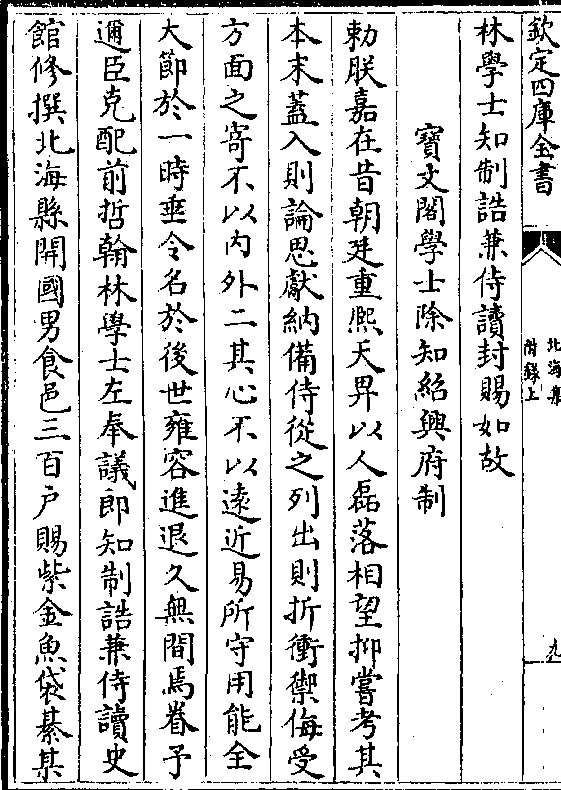 欽定四庫全書
北海集
附錄上
九
林學士知制誥兼侍讀封賜如故
寶文閣學士除知紹興府制
勅朕嘉在昔朝廷重熙天畀以人磊落相望抑嘗考其
本末蓋入則論思獻納備侍從之列出則折衝禦侮受
方面之寄不以内外二其心不以遠近易所守用能全
大節於一時垂令名於後世雍容進退久無間焉眷予
邇臣克配前哲翰林學士左奉議郎知制誥兼侍讀史
館修撰北海縣開國男食邑三百户賜紫金魚袋綦某